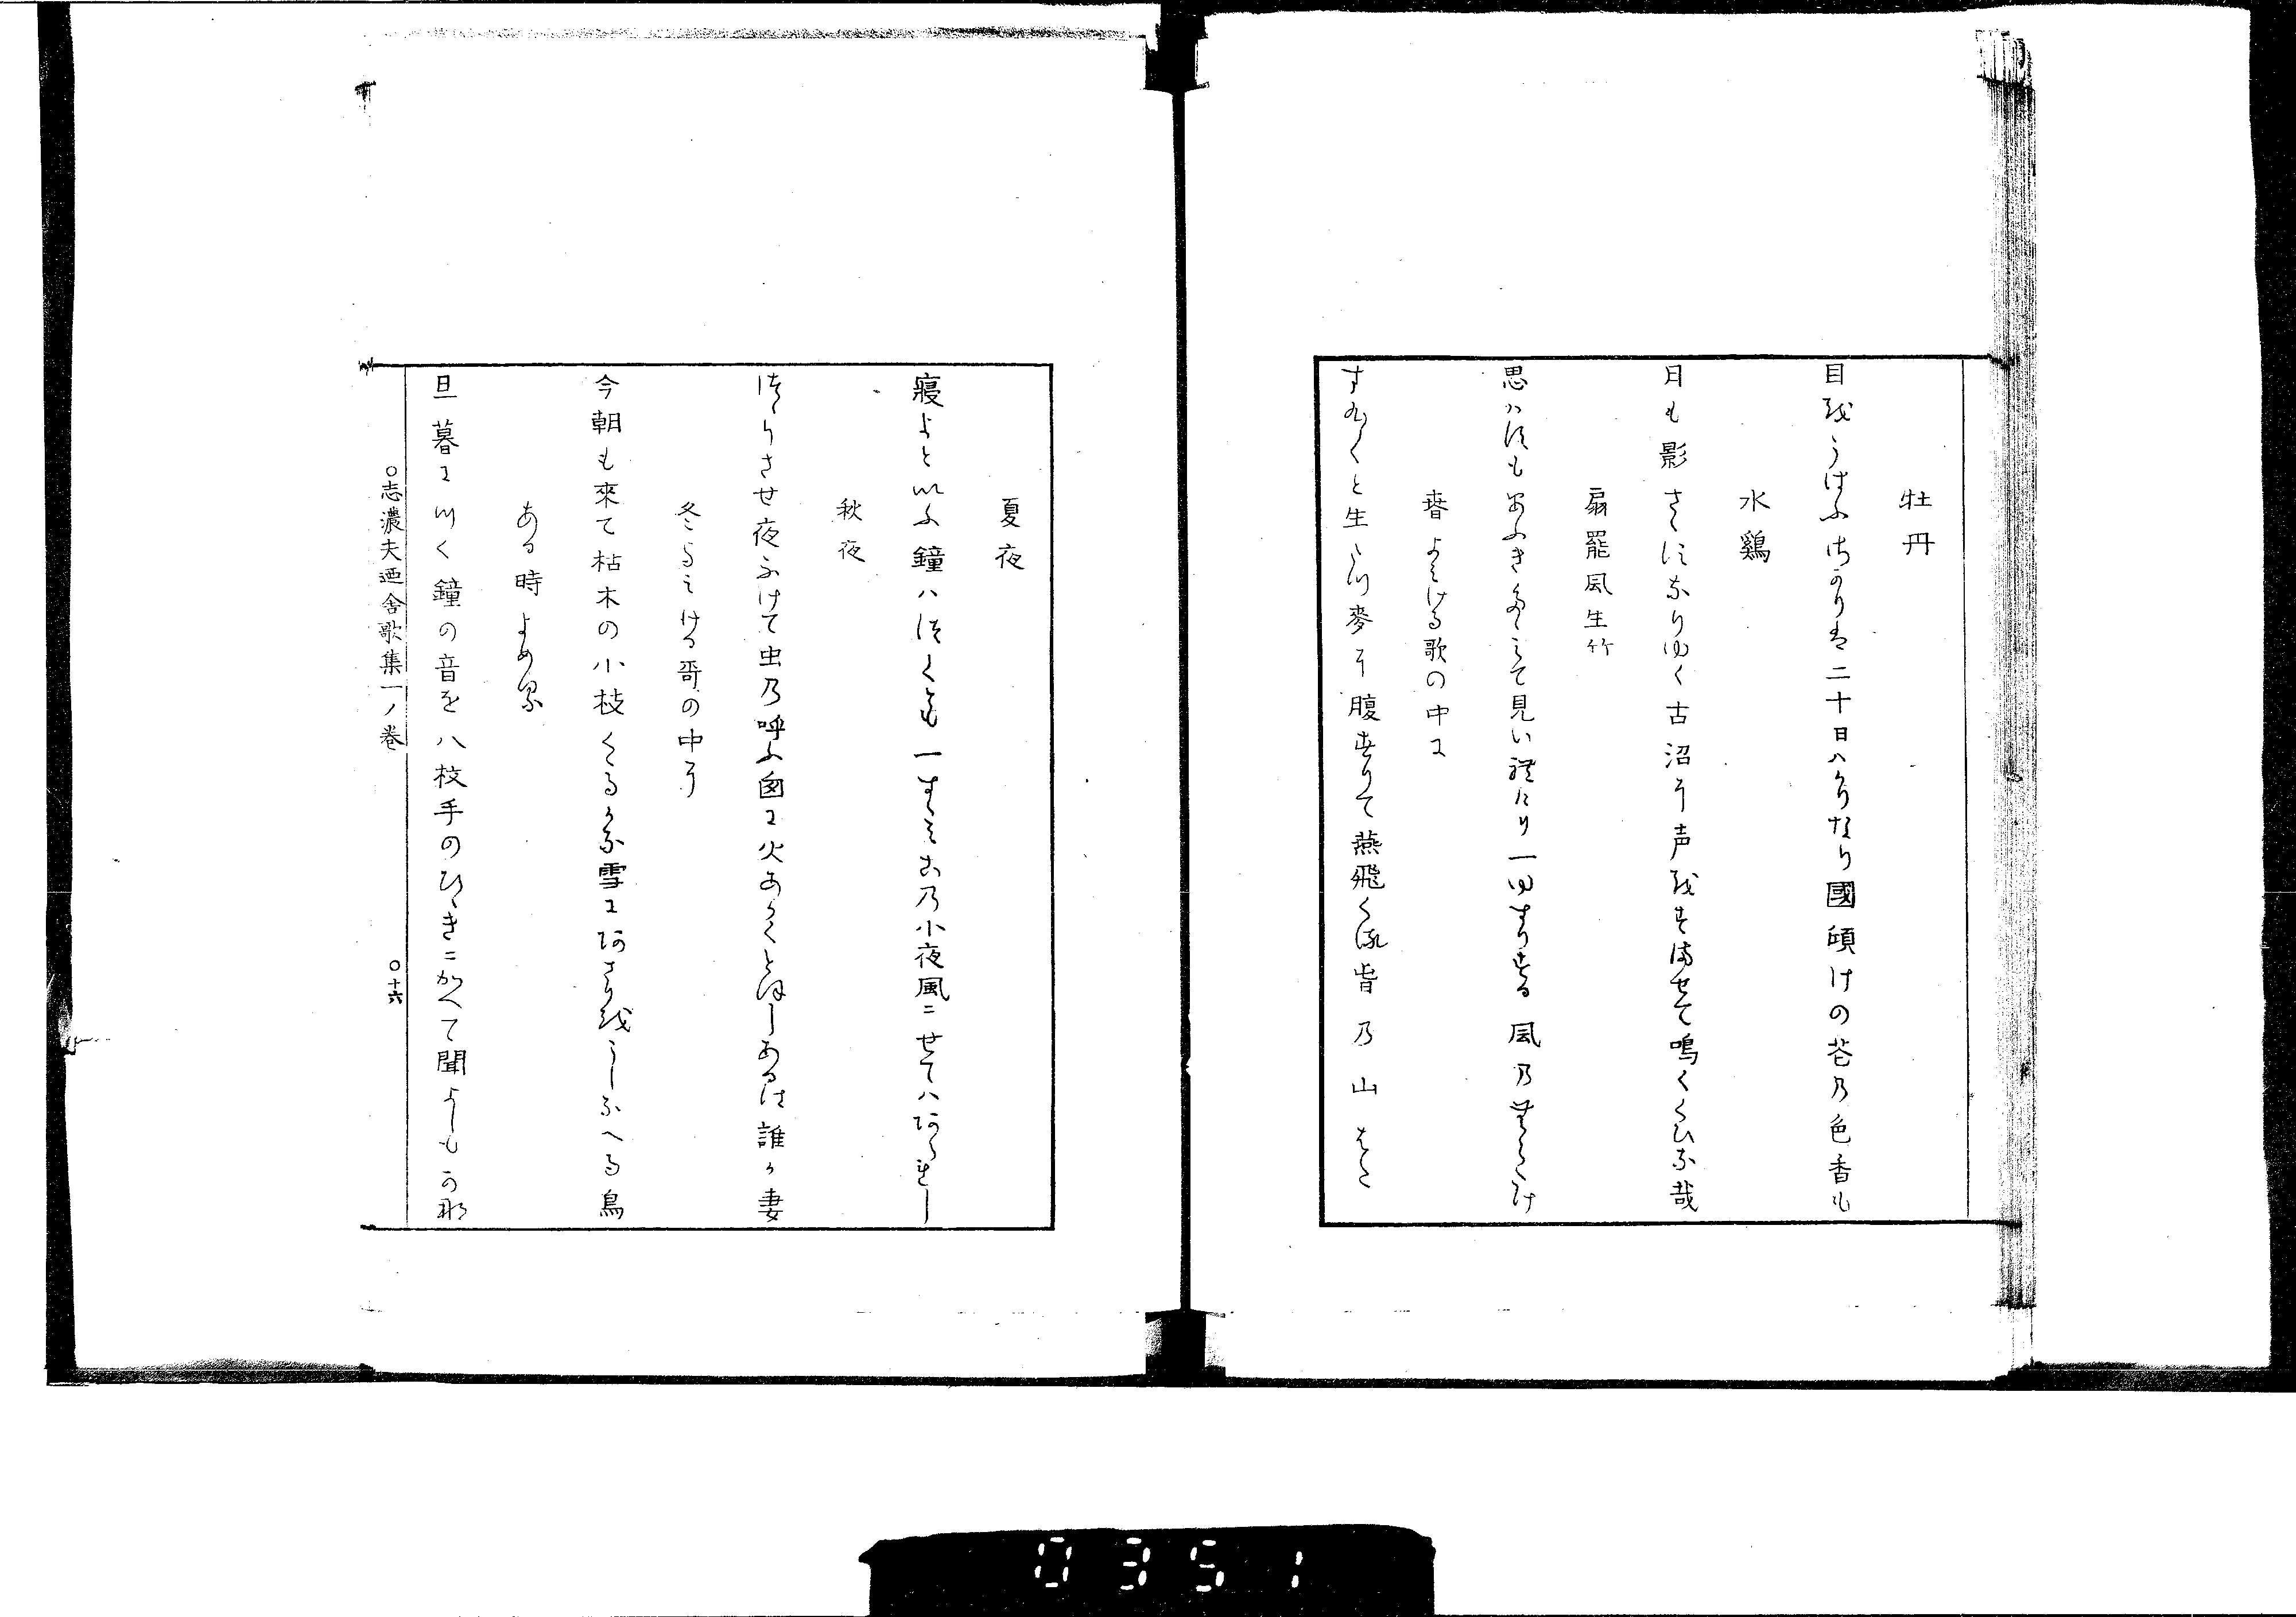 牡丹
目をうはふさかりは二十日はかりなり國傾けの花乃色香も
水鶏
月も影さゝすなりゆく古沼に声をすませて鳴くくひな哉
扇罷風生竹
思ハすもあふきおとして見いれけり一ゆすりする風乃むらたけ
春よみける歌の中に
すくすくと生たつ麥に腹すりて燕飛くる春乃山はた
夏夜
寝よといふ鐘ハつくとも一すゝみこの小夜風ニせてハあられし
秋夜
つゝりさせ夜ふけて虫乃呼ふ窗に火あかくとほしあるは誰か妻
冬よみける哥の中に
今朝も來て枯木の小枝くるかな雪にあさりをうしなへる鳥
ある時よめる
旦暮につく鐘の音を八枚手のひゝきニかへて聞よしもかな
○志濃夫廼舎歌集一ノ巻
○十六
0351